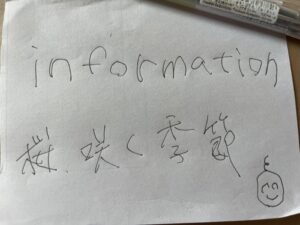 information
桜、咲く季節